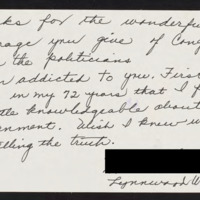 ks for the wonderfu
rage you give of Cong
the politicians
addicted to you. First
in my 72 years that I f
tle knowledgeable about
ernment. Wish I knew w
elling the truth.
Lynnwood W